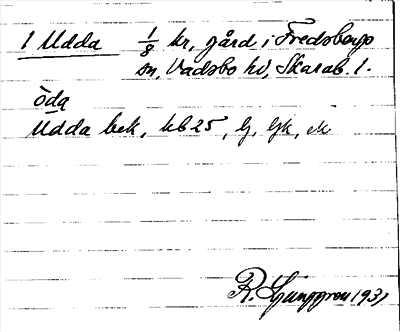 1 Udda 1/8 kr, gård i Fredsbergs
sn, Vadsbo hd, Skarab. l.
òda
Udda bek, kb 25, G, Gk, ek
R. Ljunggren 1931